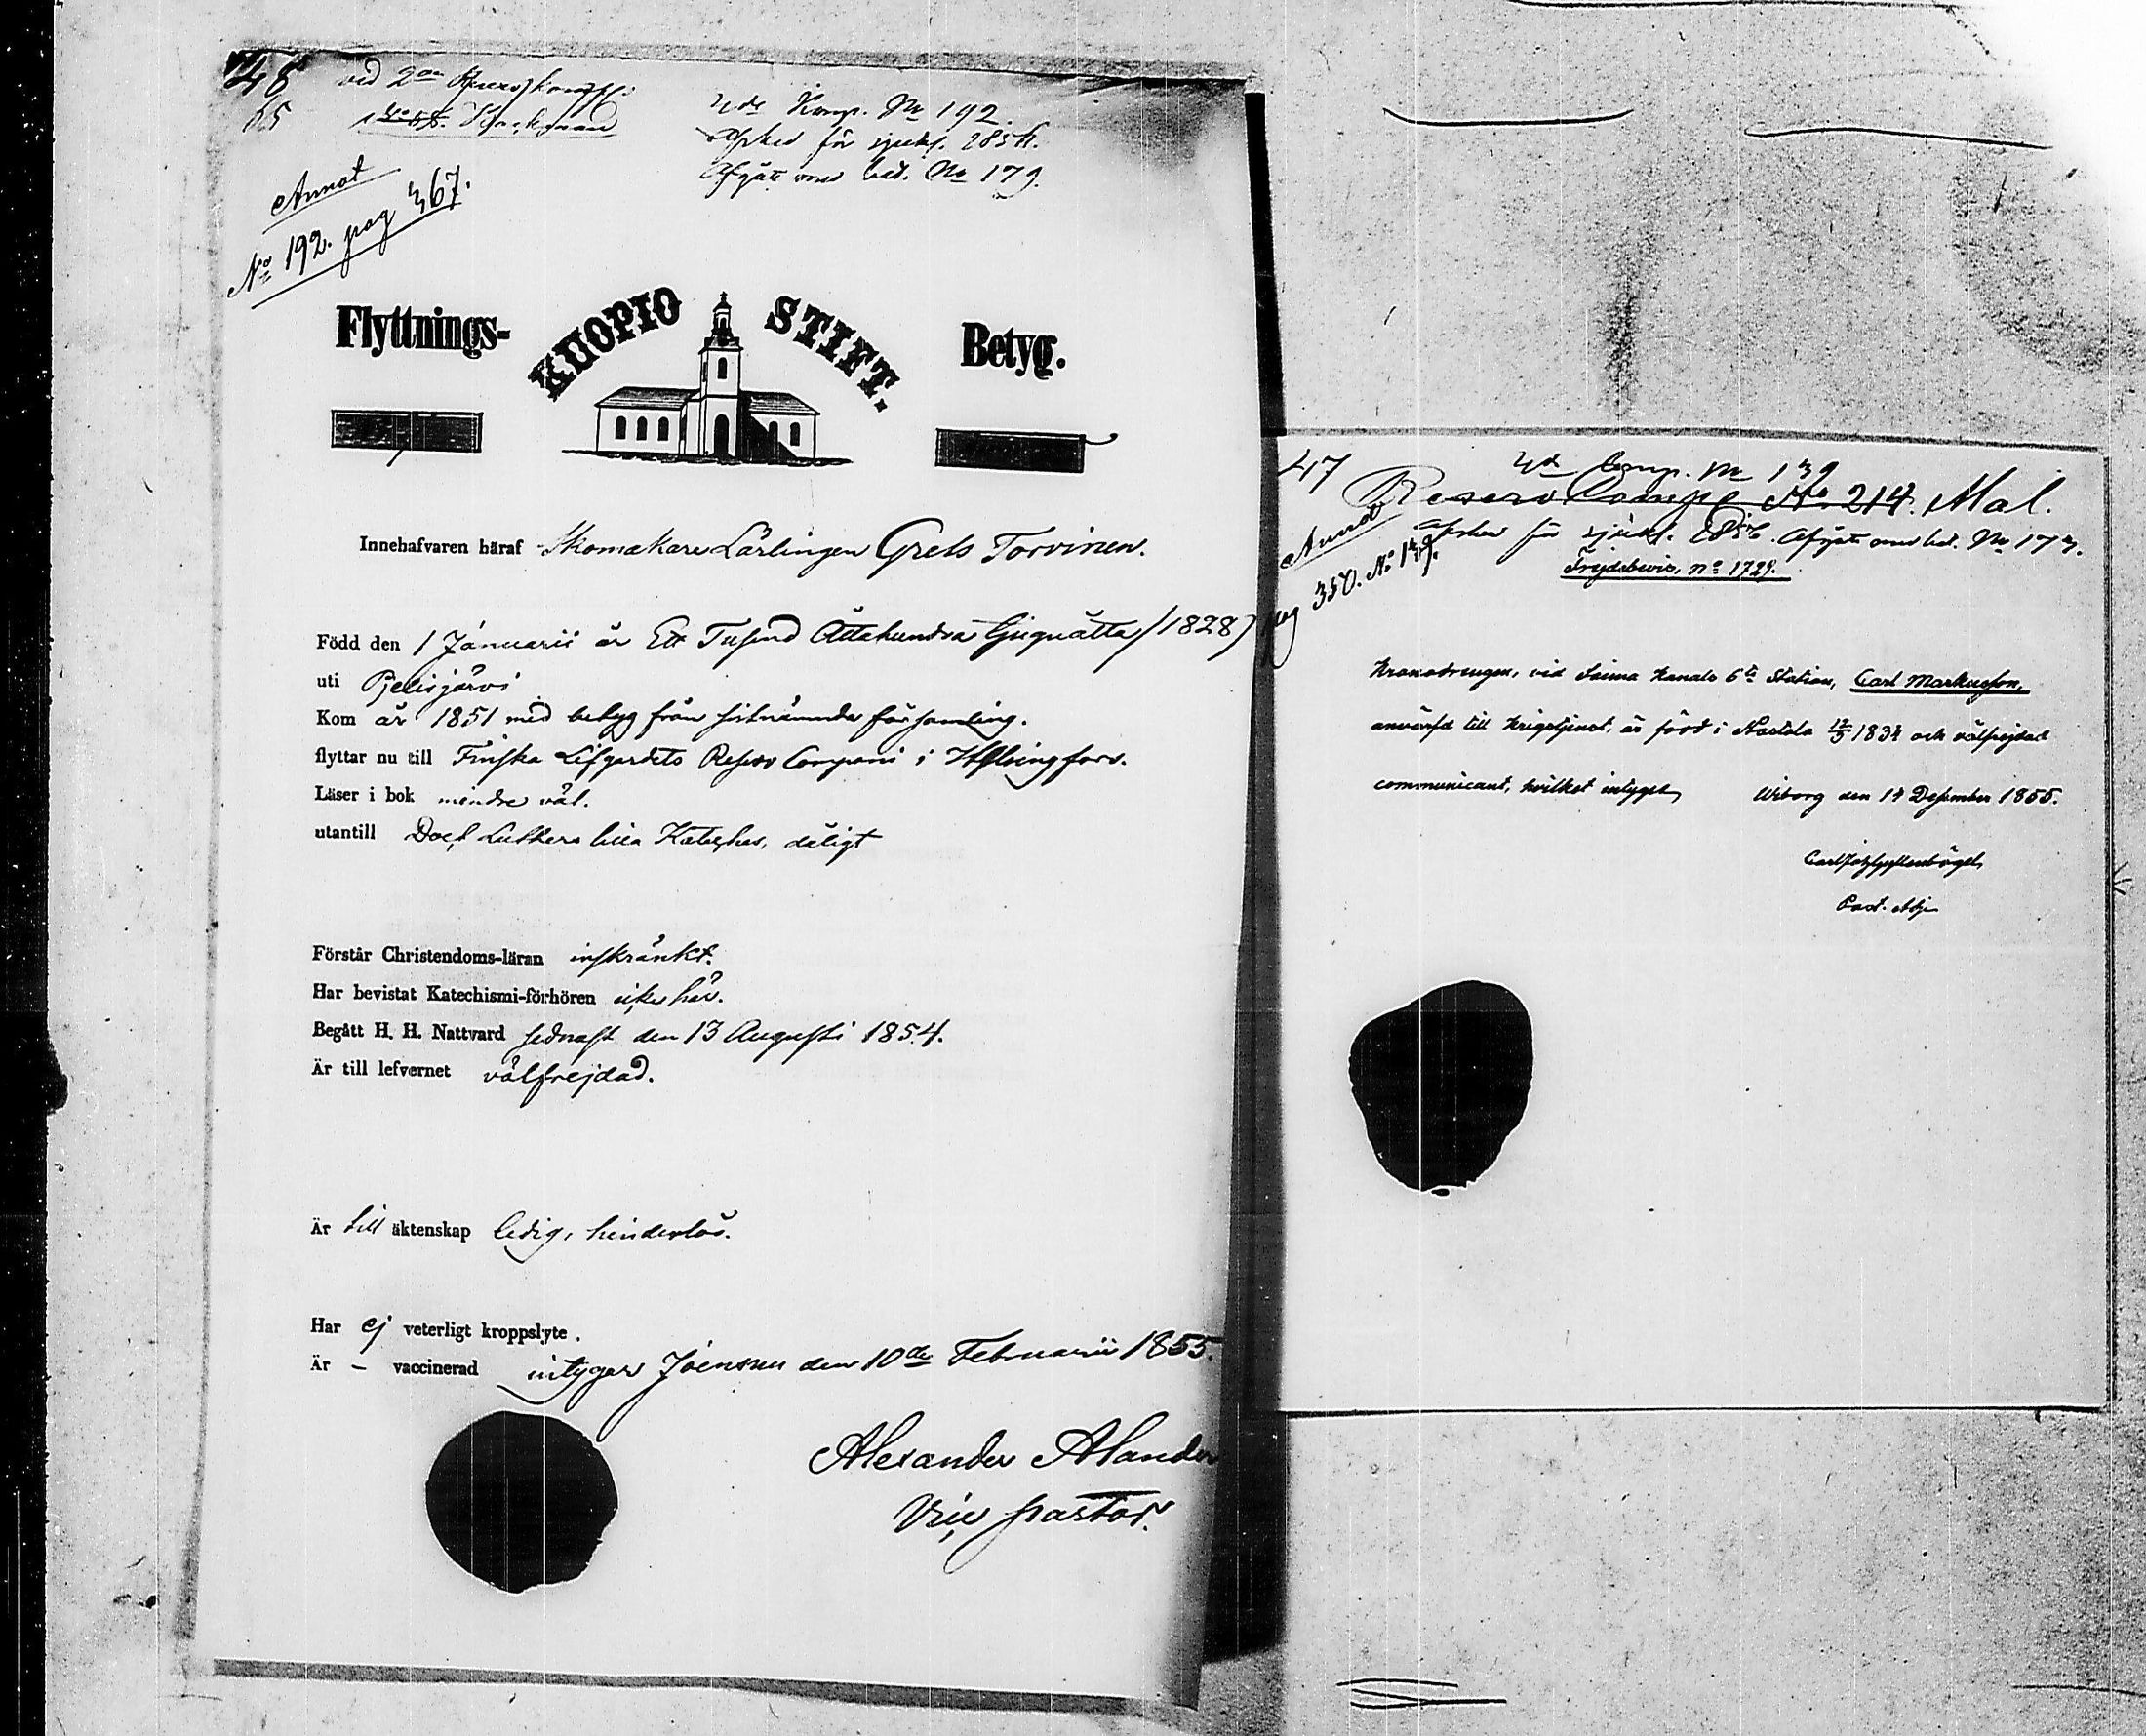 48
55
vid 2dra
4de Komp. No 192.
för sjukl. 1856.
Afgått med bet. No 179.
Annot
No 192. pag 367.
Flyttnings-
KUOPIO STIFT.
Betyg.
Innehafvaren häraf Skomakare Lärlingen Grels Torvinen.
Född den 1 Januarii år Ett Tusend Åttahundra Tjuguåtta (1828)
uti Pjelisjärvi
Kom år 1851 med betyg från sistnämnde församling.
flyttar nu till Finska Lifgardets Reserv Compani i Helsingfors.
Läser i bok mindre väl.
utantill Doct Luthers lilla Kateches, dåligt
Förstår Christendoms-läran inskränkt.
Har bevistat Katechismi-förhören icke här.
Begått H. H. Nattvard sednast den 13 Augusti 1854.
Är till lefvernet välfrejdad.
Är till äktenskap ledig, hinderlös.
Har ej veterligt kroppslyte.
Är – vaccinerad intygar Joensuu den 10de Februarii 1855.
Alexander Alander
Vice pastor.
47
4de Comp. No 139
Reserv Compe No 214. Mal.
för sjukl. 1856. Afgått med bet. No 173.
Frejdebevis, no 1729.
Annot
pag 350. No 139.
Kronodrengen, vid Saima Kanals 6te Station, Carl Markusson,
anvärfd till krigstjenst, är född i Nastola 12/5 1834 och välfrejdad
communicant, hvilket intygas, Wiborg den 14 December 1855.
Past. Adj.